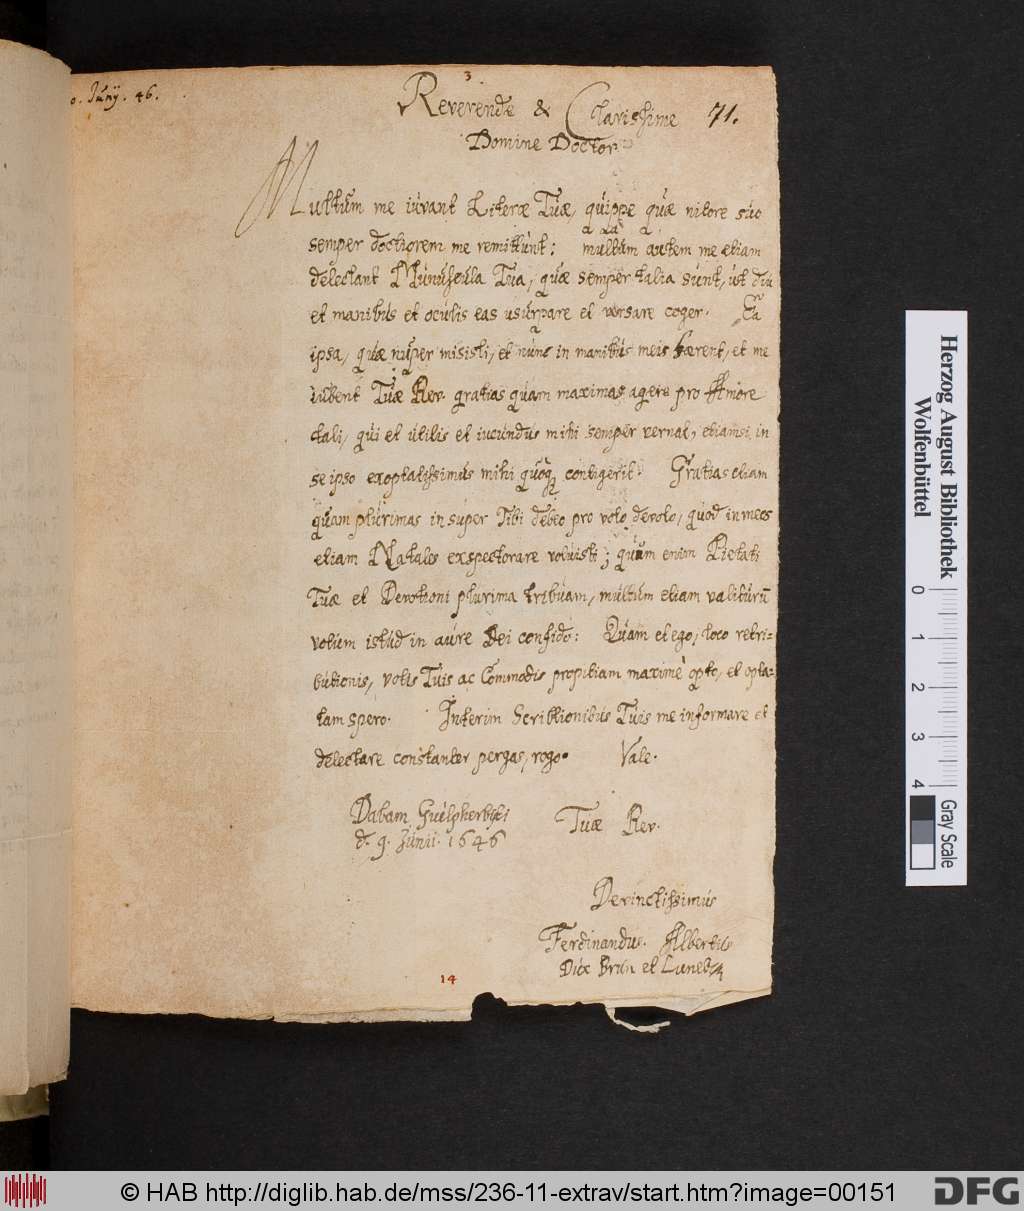 3
0. Junij. 46.
Reverende & Clarissime 71.
Domine Doctor
Multum me iuvant Literæ Tuæ, quippe quæ nitore suo
semper doctiorem me remittunt: multum autem me etiam
delectant Munuscula Tua, quæ semper talia sunt, ut diu
et manibus et oculis eas usurpare et versare coger. Ea
ipsa, quæ nuper misisti, et nunc in manibus meis hærent, et me
iubent Tuæ Rev. gratias quam maximas agere pro Amore
tali, qui et utilis et iucundus mihi semper vernat, etiamsi in
se ipso exoptatissimus mihi quoq contigerit. Gratias etiam
quam plurimas insuper Tibi debeo pro voto devoto, quod in meos
etiam Natales exspectorare voluisti; quum enim Pietati
Tuæ et Devotioni plurima tribuam, multum etiam valiturũ
votum istud in aure Dei confido: Quam et ego, loco retri-
butionis, votis Tuis ac Commodis propitiam maximè opto, et opta-
tam spero. Interim Scribtionibus Tuis me informare et
delectare constanter pergas, rogo. Vale.
Dabam Guelpherbyti
d. 9. Junii. 1646
Tuæ Rev.
Devinctissimus
Ferdinandus Albertus
Dux Brun et Luneb
14
Herzog August Bibliothek
Wolfenbüttel
0 1 2 3 4
Gray Scale
© HAB http://diglib.hab.de/mss/236-11-extrav/start.htm?image=00151
DFG